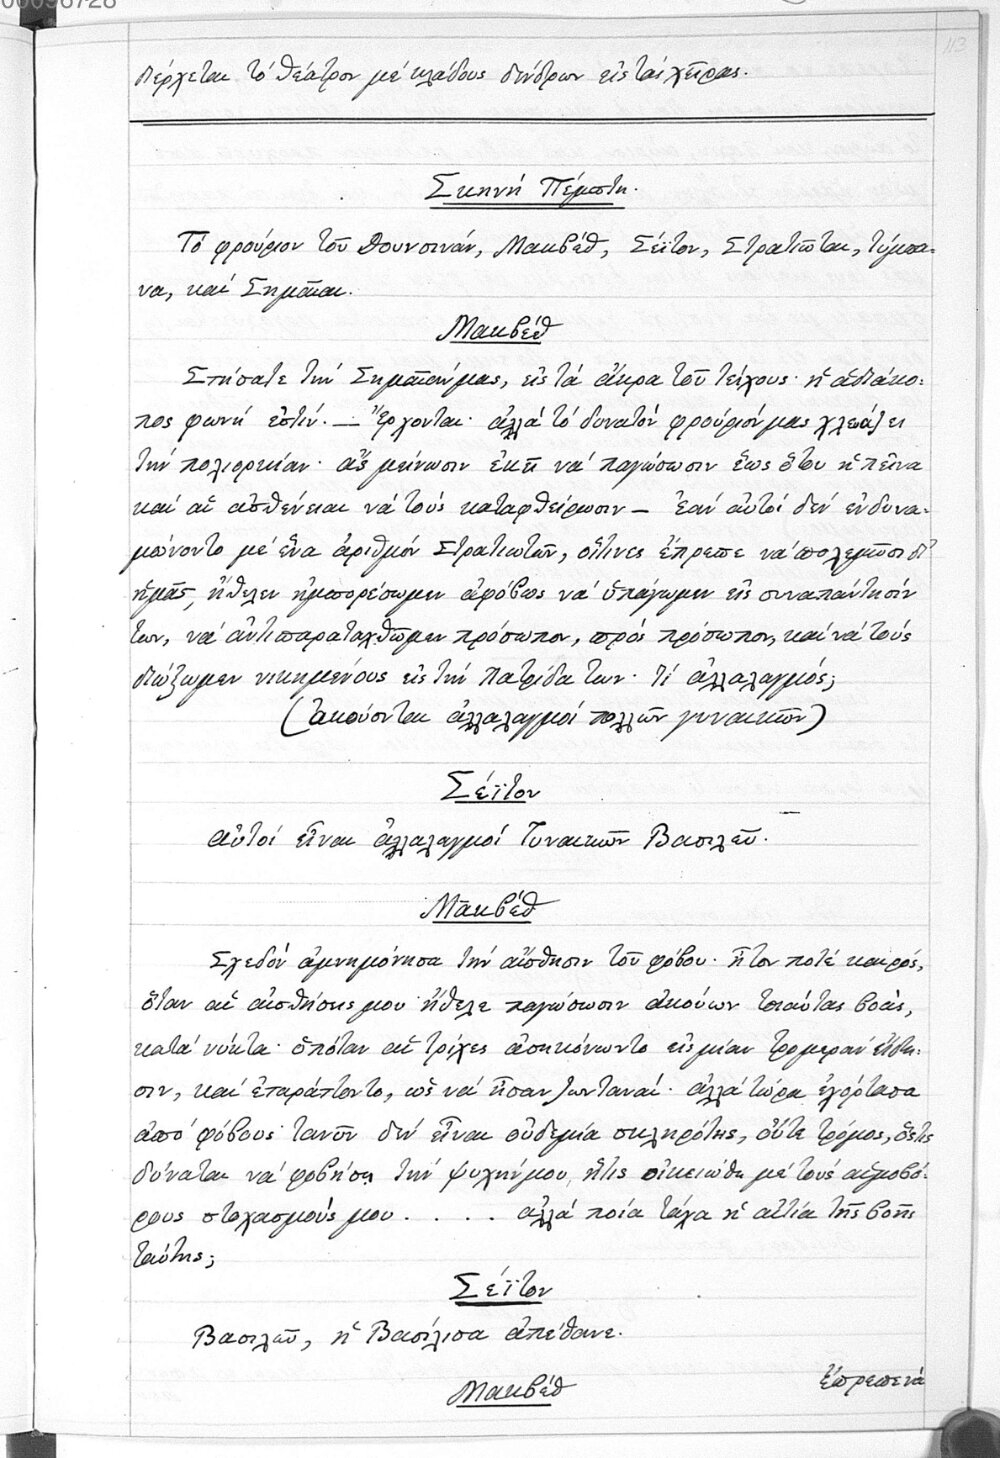 00096728
113
διέρχεται τὸ θέατρον μὲ κλάδους δένδρων εἰς τὰς χεῖρας.
Σκηνὴ Πέμπτη.
Τὸ φρούριον τοῦ Δουνσινάν, Μακβέθ, Σέϊτον, Στρατιῶται, τύμπα-
να, καὶ Σημαῖαι.
Μακβέθ
Στήσατε τὴν Σημαῖαν μας, εἰς τὰ ἄκρα τοῦ τείχους· ἡ ἀδιάκο-
πος φωνὴ ἐστίν. — "Ἔρχονται· ἀλλὰ τὸ δυνατὸν φρούριόν μας χλευάζει
τὴν πολιορκίαν· ἂς μείνωσιν ἐκεῖ νὰ παγώσωσιν ἕως ὅτου ἡ πεῖνα
καὶ αἱ ἀσθένειαι νὰ τοὺς καταφθείρωσιν — Ἐὰν αὐτοὶ δὲν ἐνδυνα-
μώνοντο μὲ ἕνα ἀριθμὸν Στρατιωτῶν, οἵτινες ἔπρεπε νὰ πολεμῶσι δι'
ἡμᾶς, ἤθελεν ἠμπορέσωμεν ἀφόβως νὰ ὑπάγωμεν εἰς συναπάντησίν
των, νὰ ἀντιπαραταχθῶμεν πρόσωπον, πρὸς πρόσωπον, καὶ νὰ τοὺς
διώξωμεν νικημένους εἰς τὴν Πατρίδα των. Τί ἀλλαλαγμός;
(Ἀκούονται ἀλλαλαγμοὶ πολλῶν γυναικῶν)
Σέϊτον
αὐτοὶ εἶναι ἀλλαλαγμοὶ Γυναικῶν Βασιλεῦ.
Μακβέθ
Σχεδὸν ἀμνημόνησα τὴν αἴσθησιν τοῦ φόβου· ἦτον ποτὲ καιρός,
ὅταν αἱ αἰσθήσεις μου ἤθελε παγώσωσιν ἀκούων τοιαύτας βοάς,
κατὰ νύκτα· ὁπόταν αἱ τρίχες ἀσηκώνοντο εἰς μίαν τρομερὰν εἴδη-
σιν, καὶ ἐταράττοντο, ὡς νὰ ἦσαν ζωνταναί· ἀλλὰ τώρα ἐχόρτασα
ἀπὸ φόβους· τανῦν δὲν εἶναι οὐδεμία σκληρότης, οὔτε τρόμος, ὅστις
δύναται νὰ φοβήσῃ τὴν ψυχήν μου, ἥτις οἰκειώθη μὲ τοὺς αἱμοβό-
ρους στοχασμούς μου . . . . ἀλλὰ ποία τάχα ἡ αἰτία τῆς βοῆς
ταύτης;
Σέϊτον
Βασιλεῦ, ἡ Βασίλισα ἀπέθανε.
Μακβέθ
Ἔπρεπε νὰ